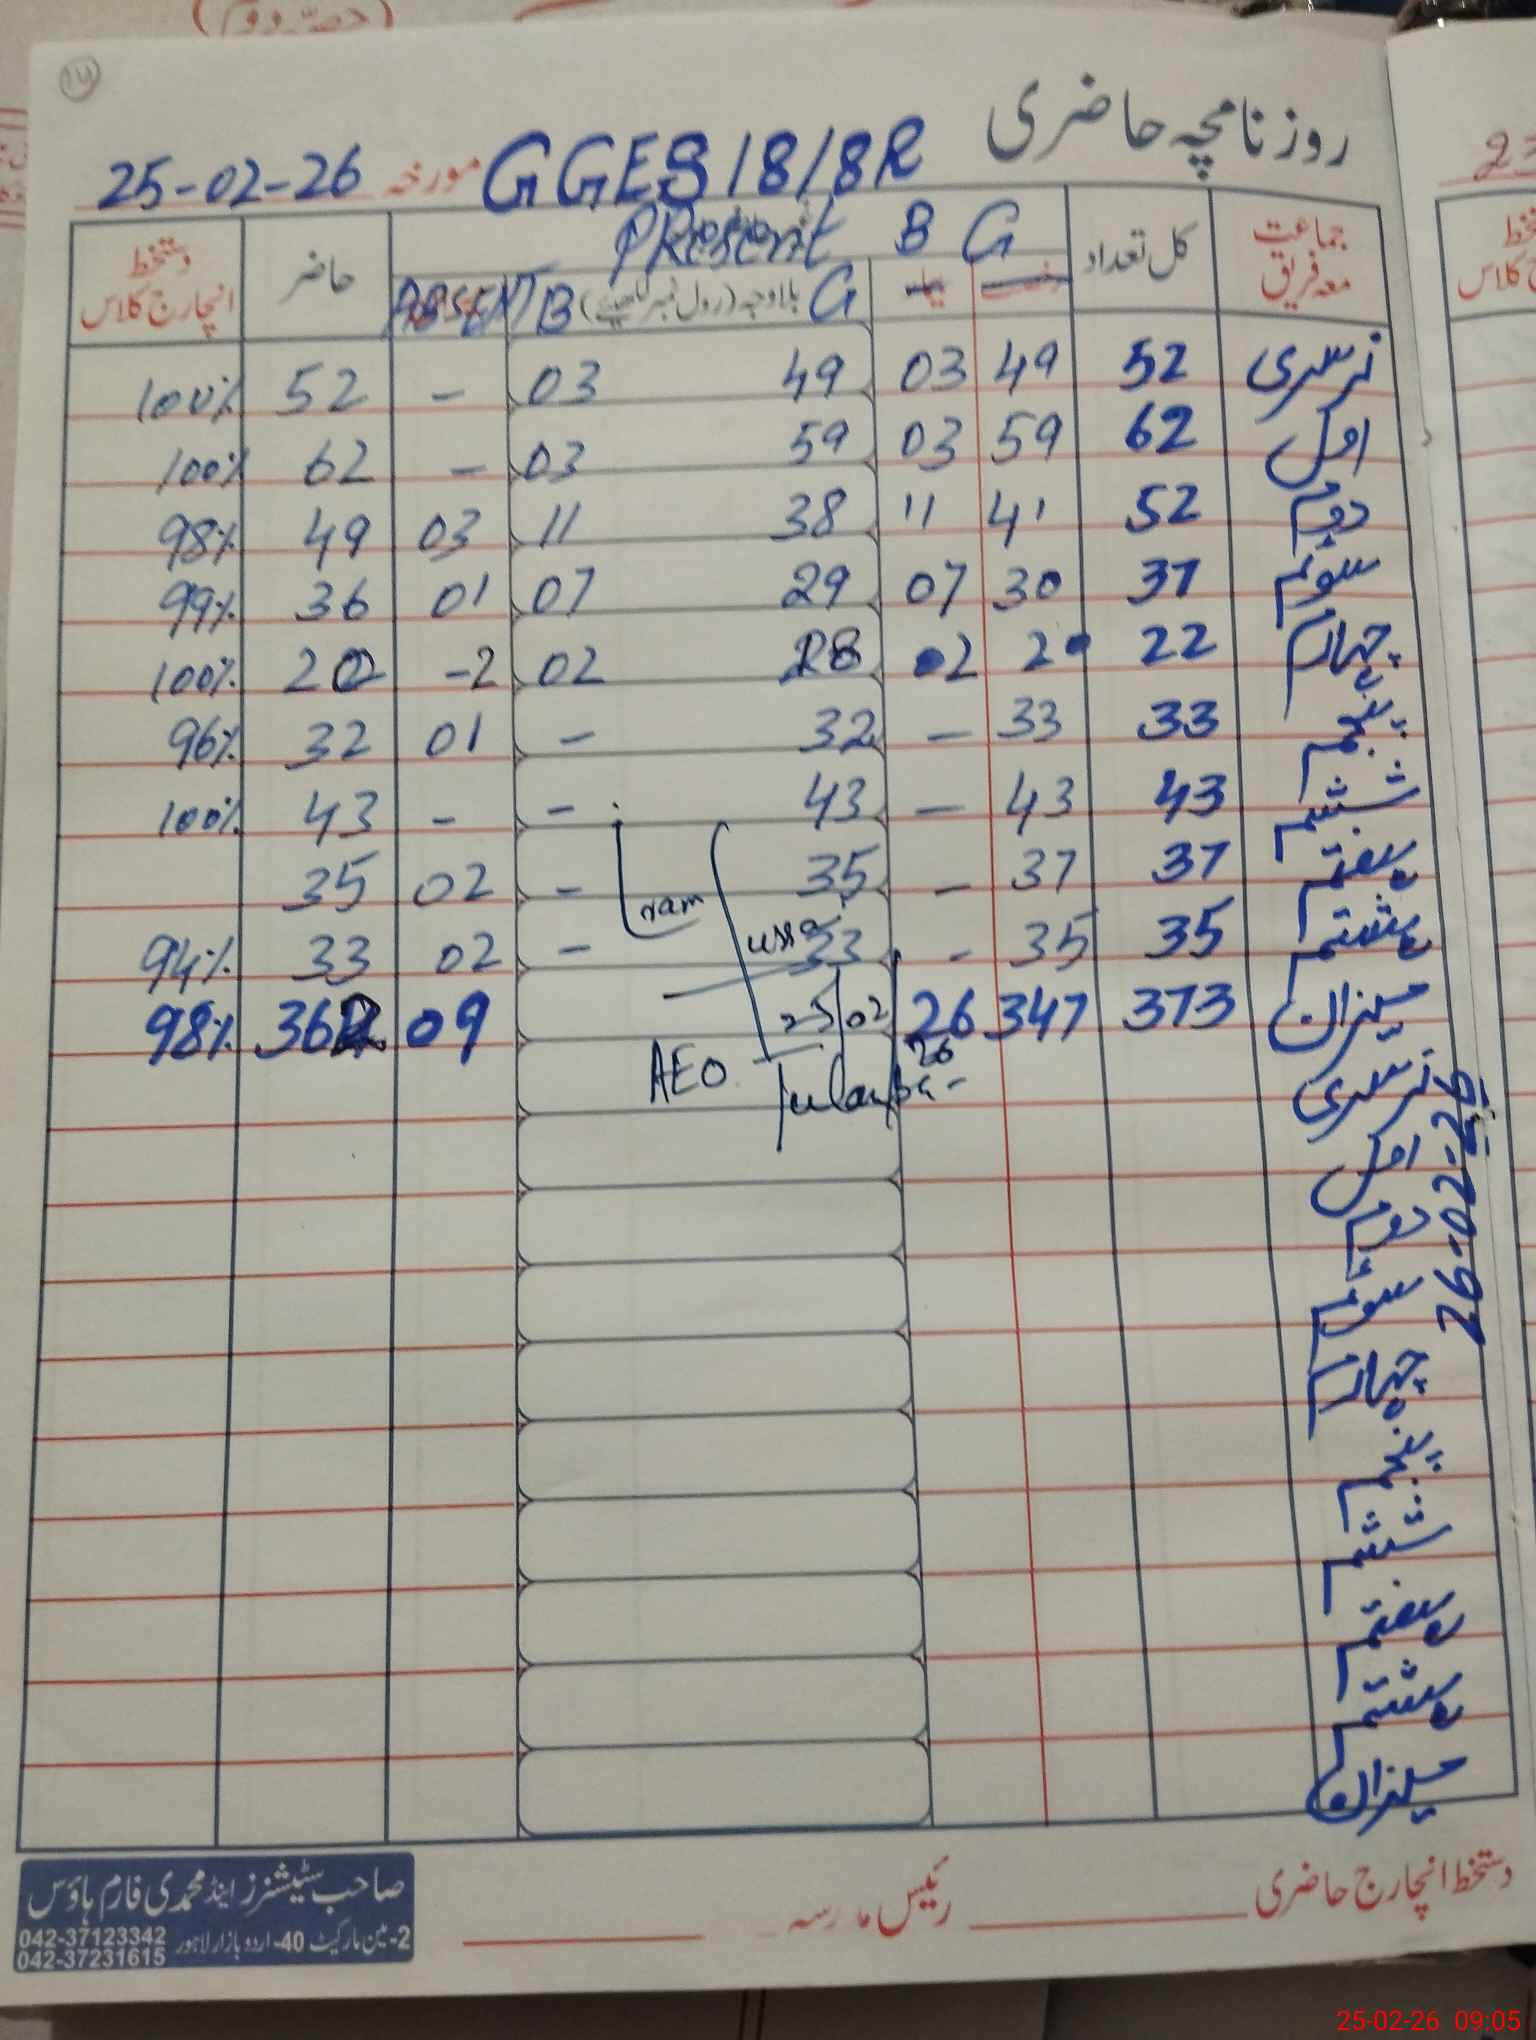 روزنامچہ حاضری
GGES 18/8R مورخہ 25-02-26
جماعت معہ فریق کل تعداد G B PResent حاضر دستخط انچارج کلاس
G بلاوجہ (رول نمبر لکھیے) B ABSENT
نرسری 52 49 03 49 03 - 52 100%
اول 62 59 03 59 03 - 62 100%
دوم 52 41 11 38 11 03 49 98%
سوئم 37 30 07 29 07 01 36 99%
چہارم 22 20 02 02 -2 100%
پنجم 33 33 - 32 - 01 32 96%
ششم 43 43 - 43 - - 43 100%
ہفتم 37 37 - 35 - 02 35
ہشتم 35 35 - 33 - 02 33 94%
میزان 373 347 26 09 98%
25/02
26
AEO
26-02-26
نرسری
اول
دوم
سوئم
چہارم
پنجم
ششم
ہفتم
ہشتم
میزان
دستخط انچارج حاضری رئیس مدرسہ
صاحب سٹیشنرز اینڈ محمدی فارم ہاؤس
2-مین مارکیٹ 40-اردو بازار لاہور 042-37123342
042-37231615
25-02-26 09:05